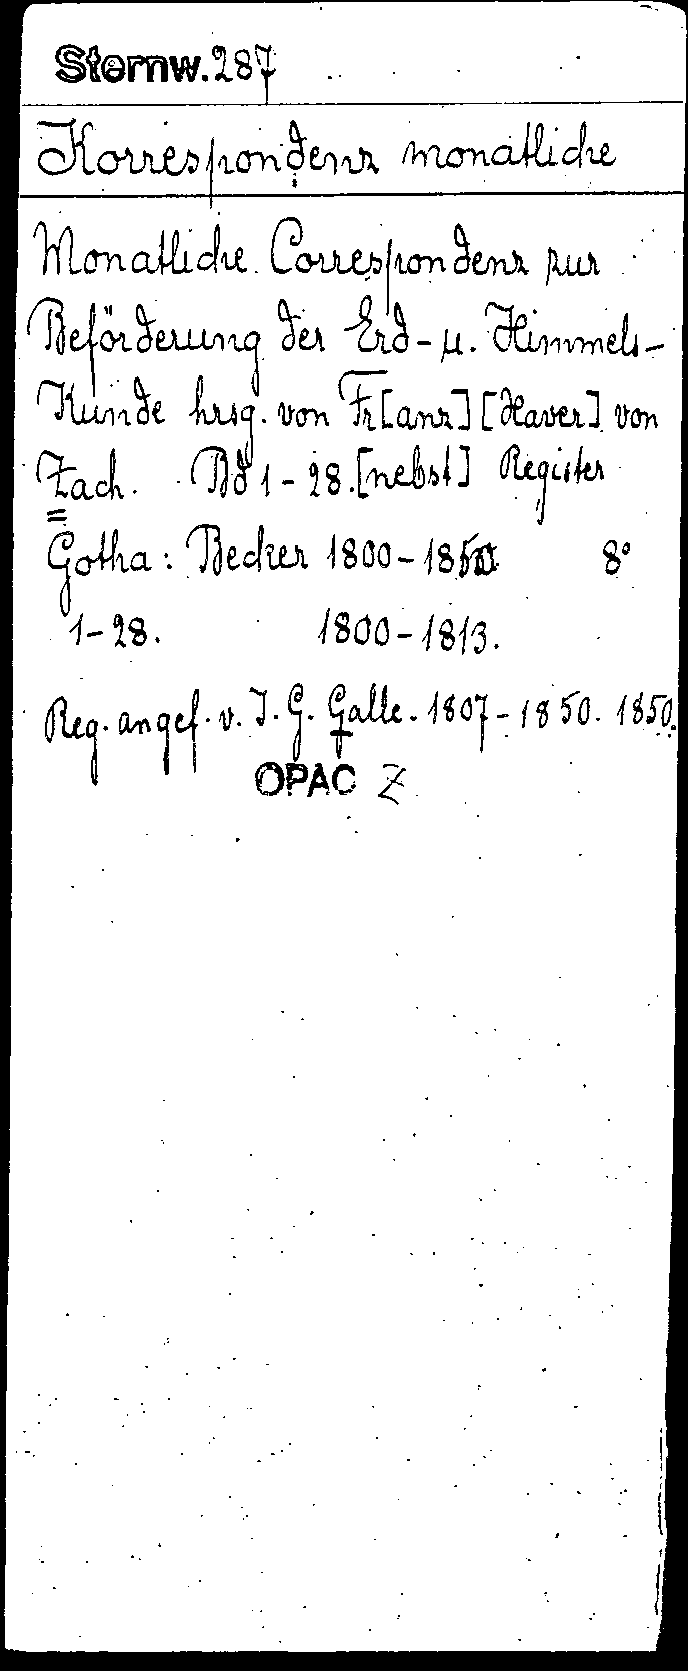 Sternw. 287
Korrespondenz monatliche
Monatliche Correspondenz zur
Beförderung der Erd- u. Himmels-
Kunde hrsg. von Fr[anz] [Xaver] von
Zach. Bd 1-28. [nebst] Register
Gotha: Becker 1800-1850 8°
1-28. 1800-1813.
Reg. angef. v. J. G. Galle. 1807-1850. 1850.
OPAC Z